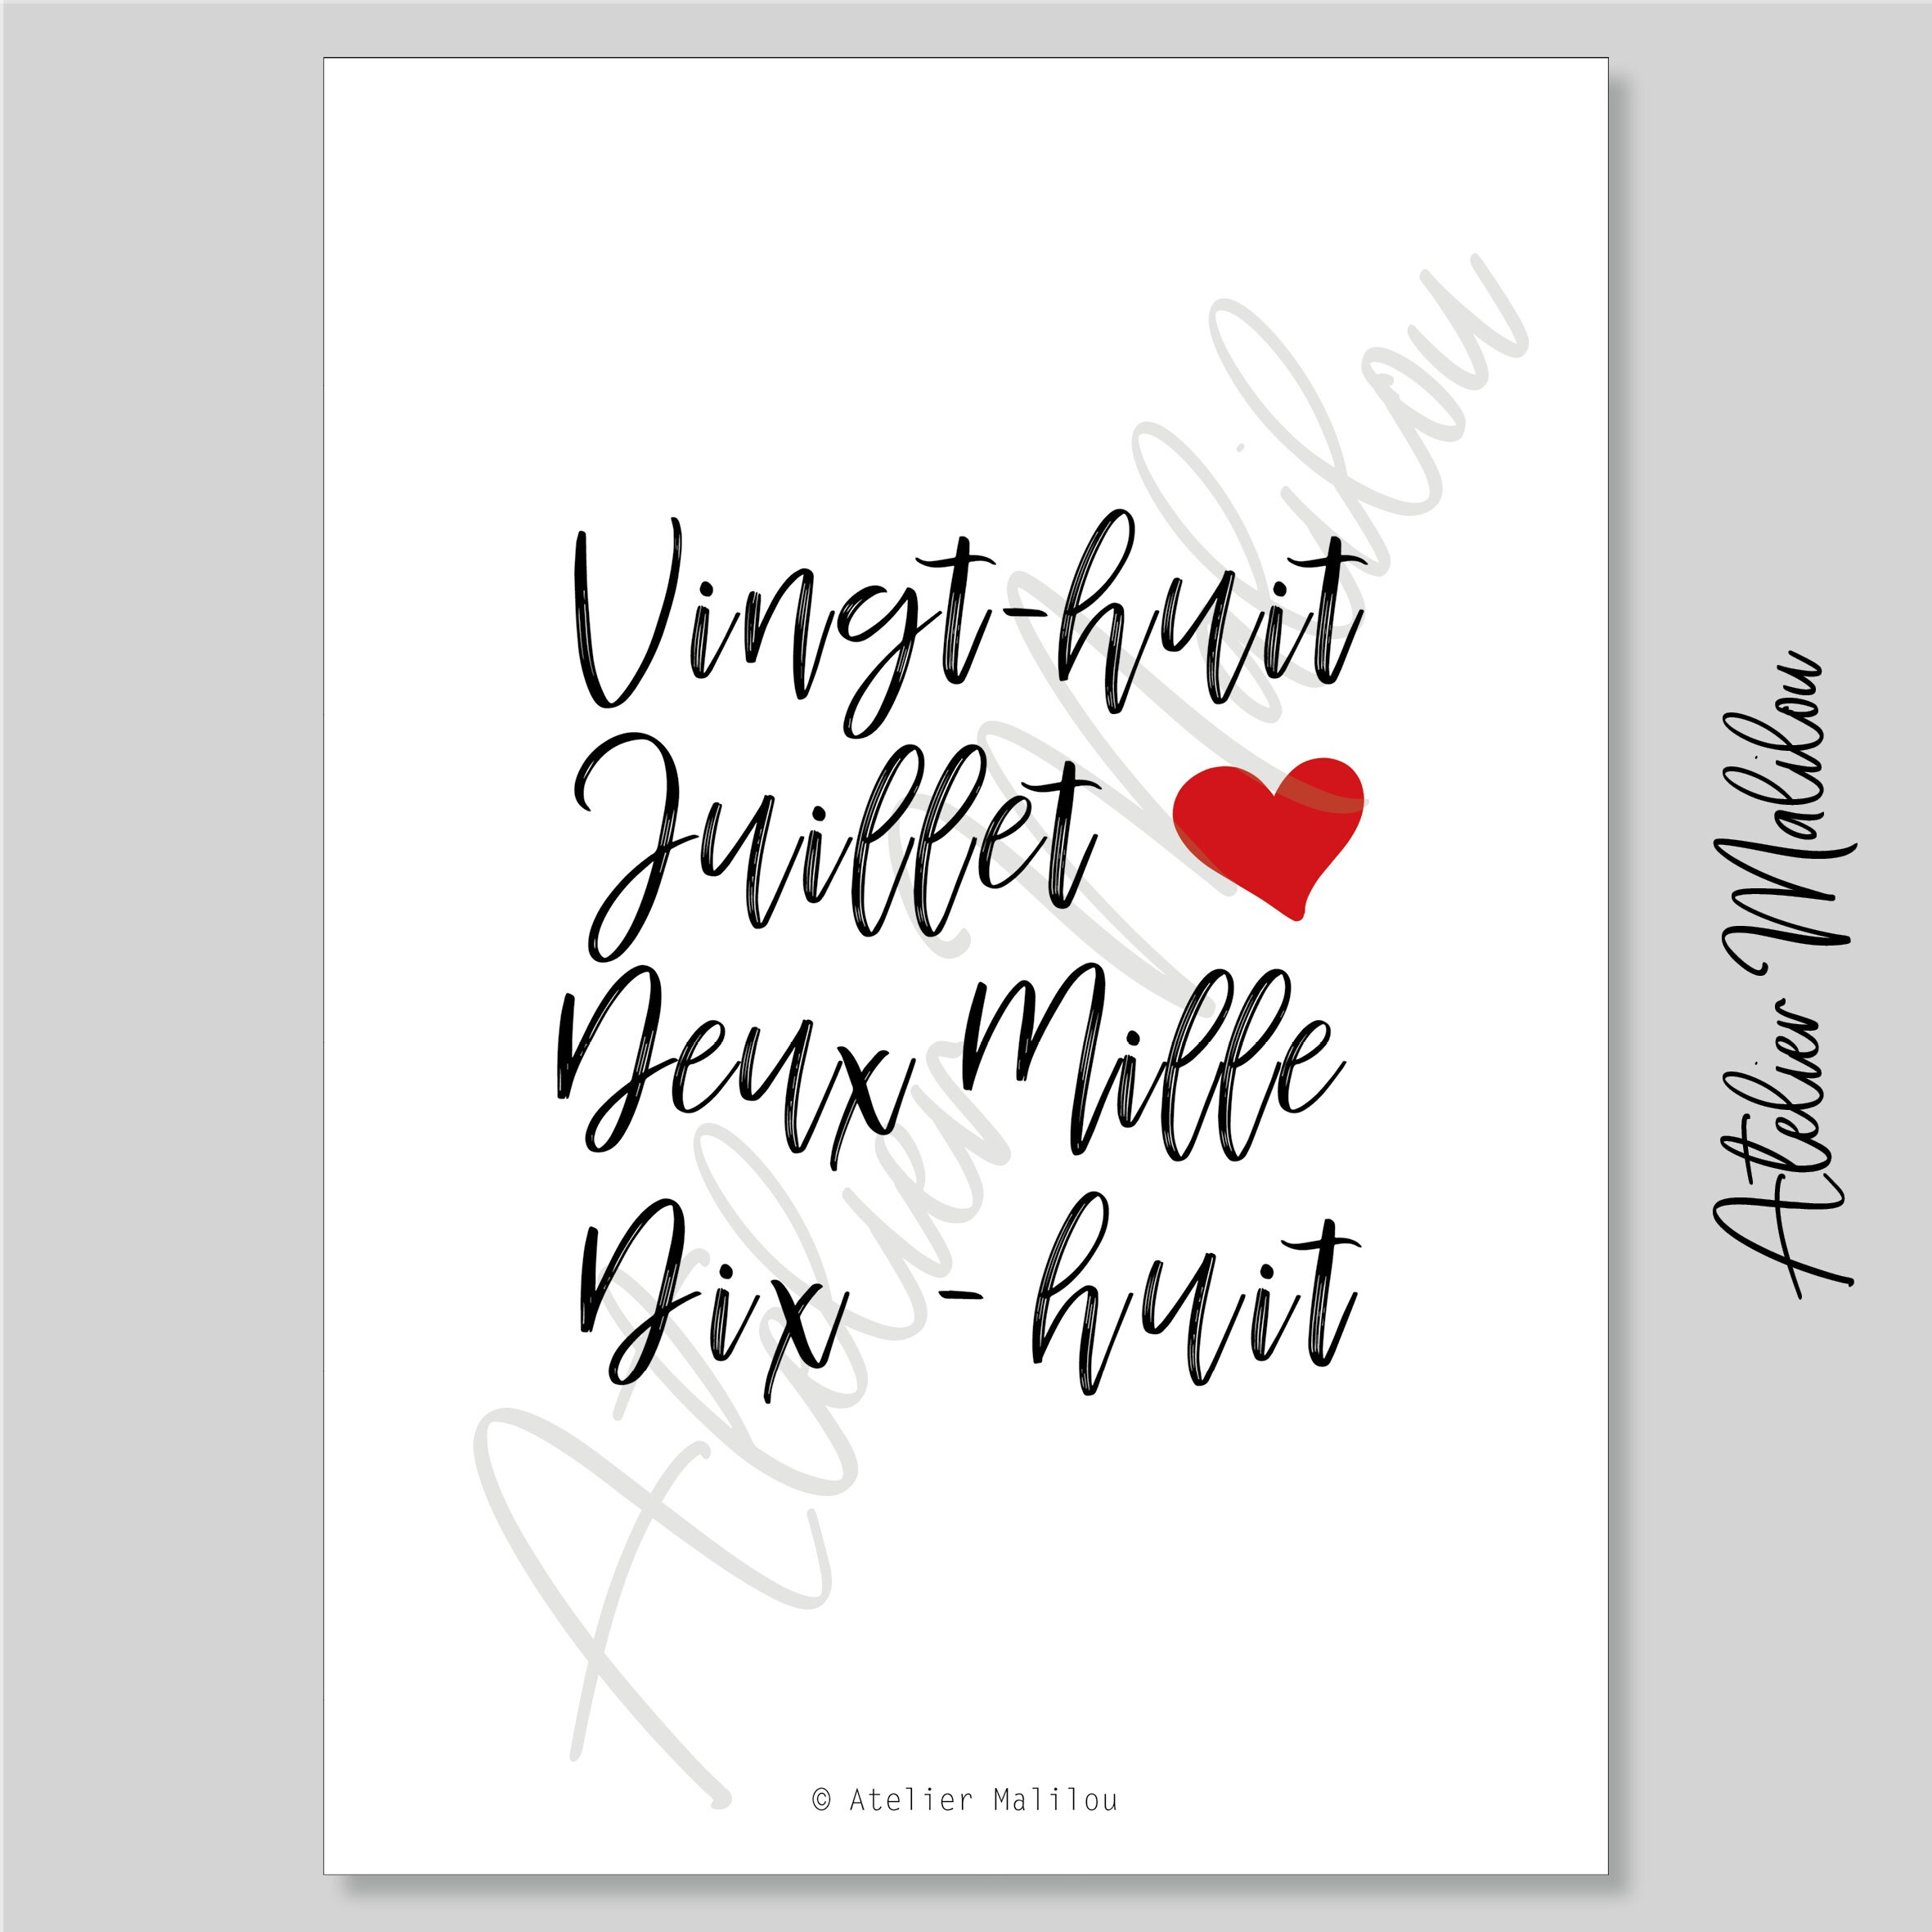 Vingt-huit
Juillet
Deux Mille
Dix - huit
Atelier Malilou
© Atelier Malilou
Atelier Malilou